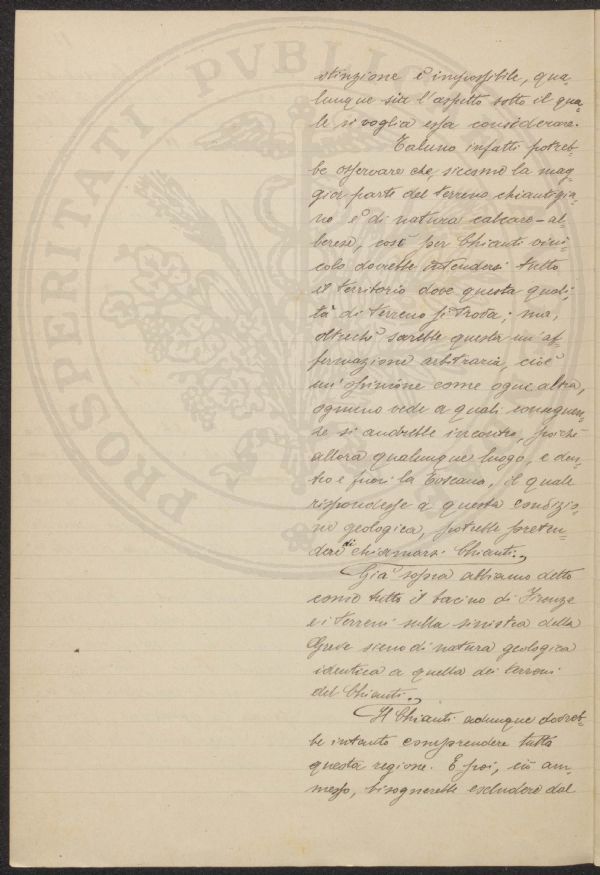 PROSPERITATI PVBLIC
stinzione è impossibile, qua=
lunque sia l'aspetto sotto il qua=
le si voglia essa considerare.
Taluno infatti potreb=
be osservare che, siccome la mag=
gior parte del terreno chiantigia=
no è di natura calcare-al=
berese, così per Chianti vini=
colo dovrebbe intendersi tutto
il territorio dove questa quali=
tà di terreno si trova; ma,
oltreché sarebbe questa un'af=
fermazione arbitraria, cioè
un'opinione come ogni altra,
ognuno vede a quali conseguen=
ze si andrebbe incontro, poiché
allora qualunque luogo, e den=
tro e fuori la Toscana, il quale
rispondesse a questa condizio=
ne geologica, potrebbe preten=
dere di chiamarsi Chianti.
Già sopra abbiamo detto
come tutto il bacino di Firenze
e i terreni sulla sinistra della
Greve sieno di natura geologica
identica a quella dei terreni
del Chianti.
Il Chianti adunque dovreb=
be intanto comprendere tutta
questa regione. E poi, ciò am=
messo, bisognerebbe escludere dal